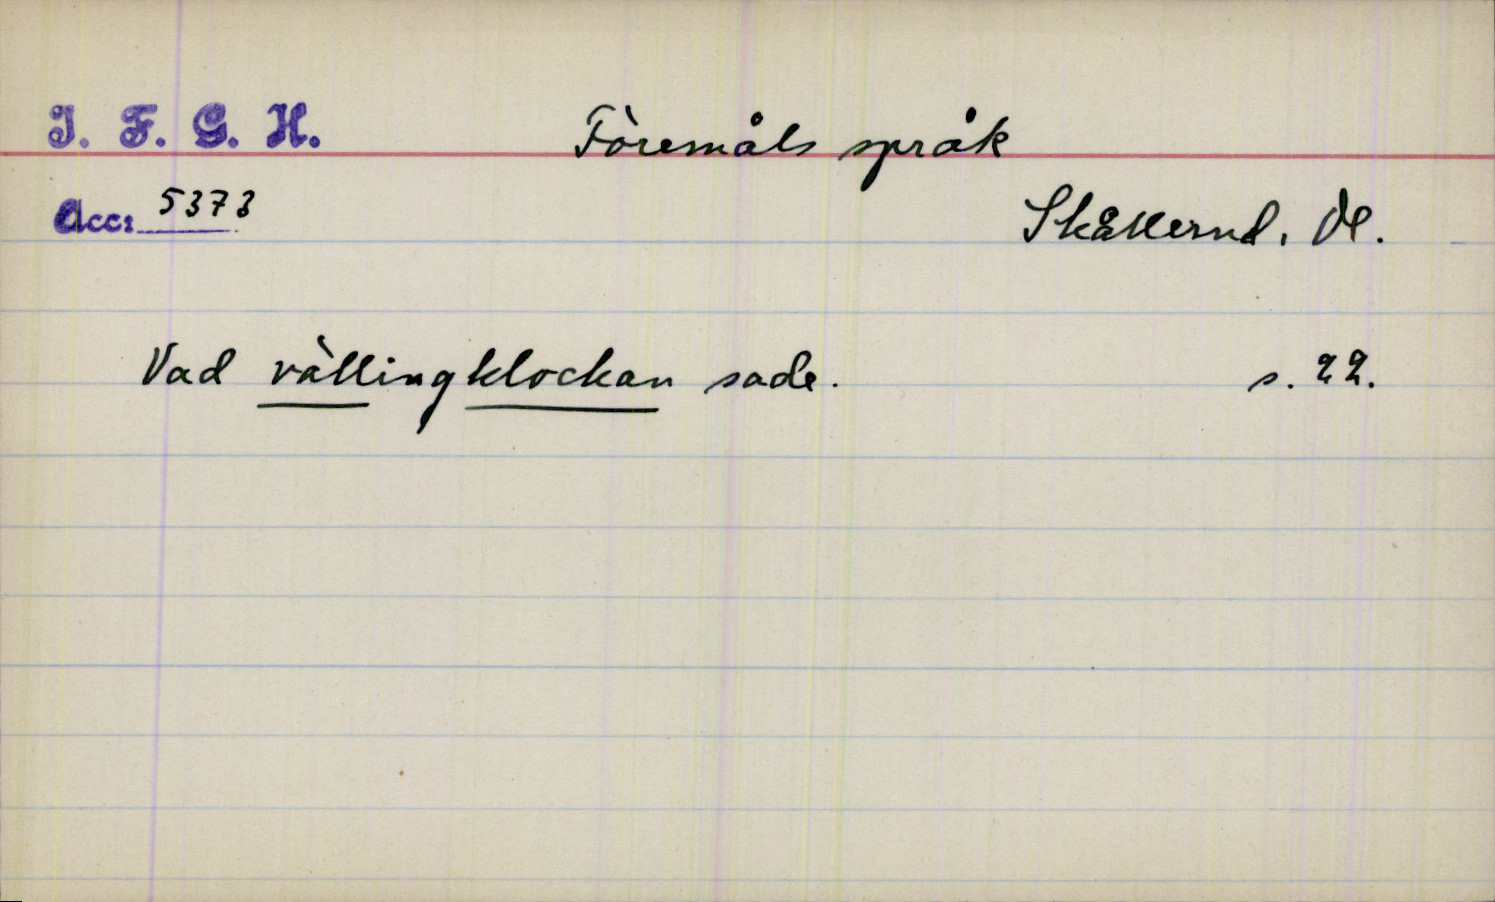 I. F. G. H.
Föremåls språk
Acc: 5373
Skållerud, Dl.
Vad vällingklockan sade. s. 22.